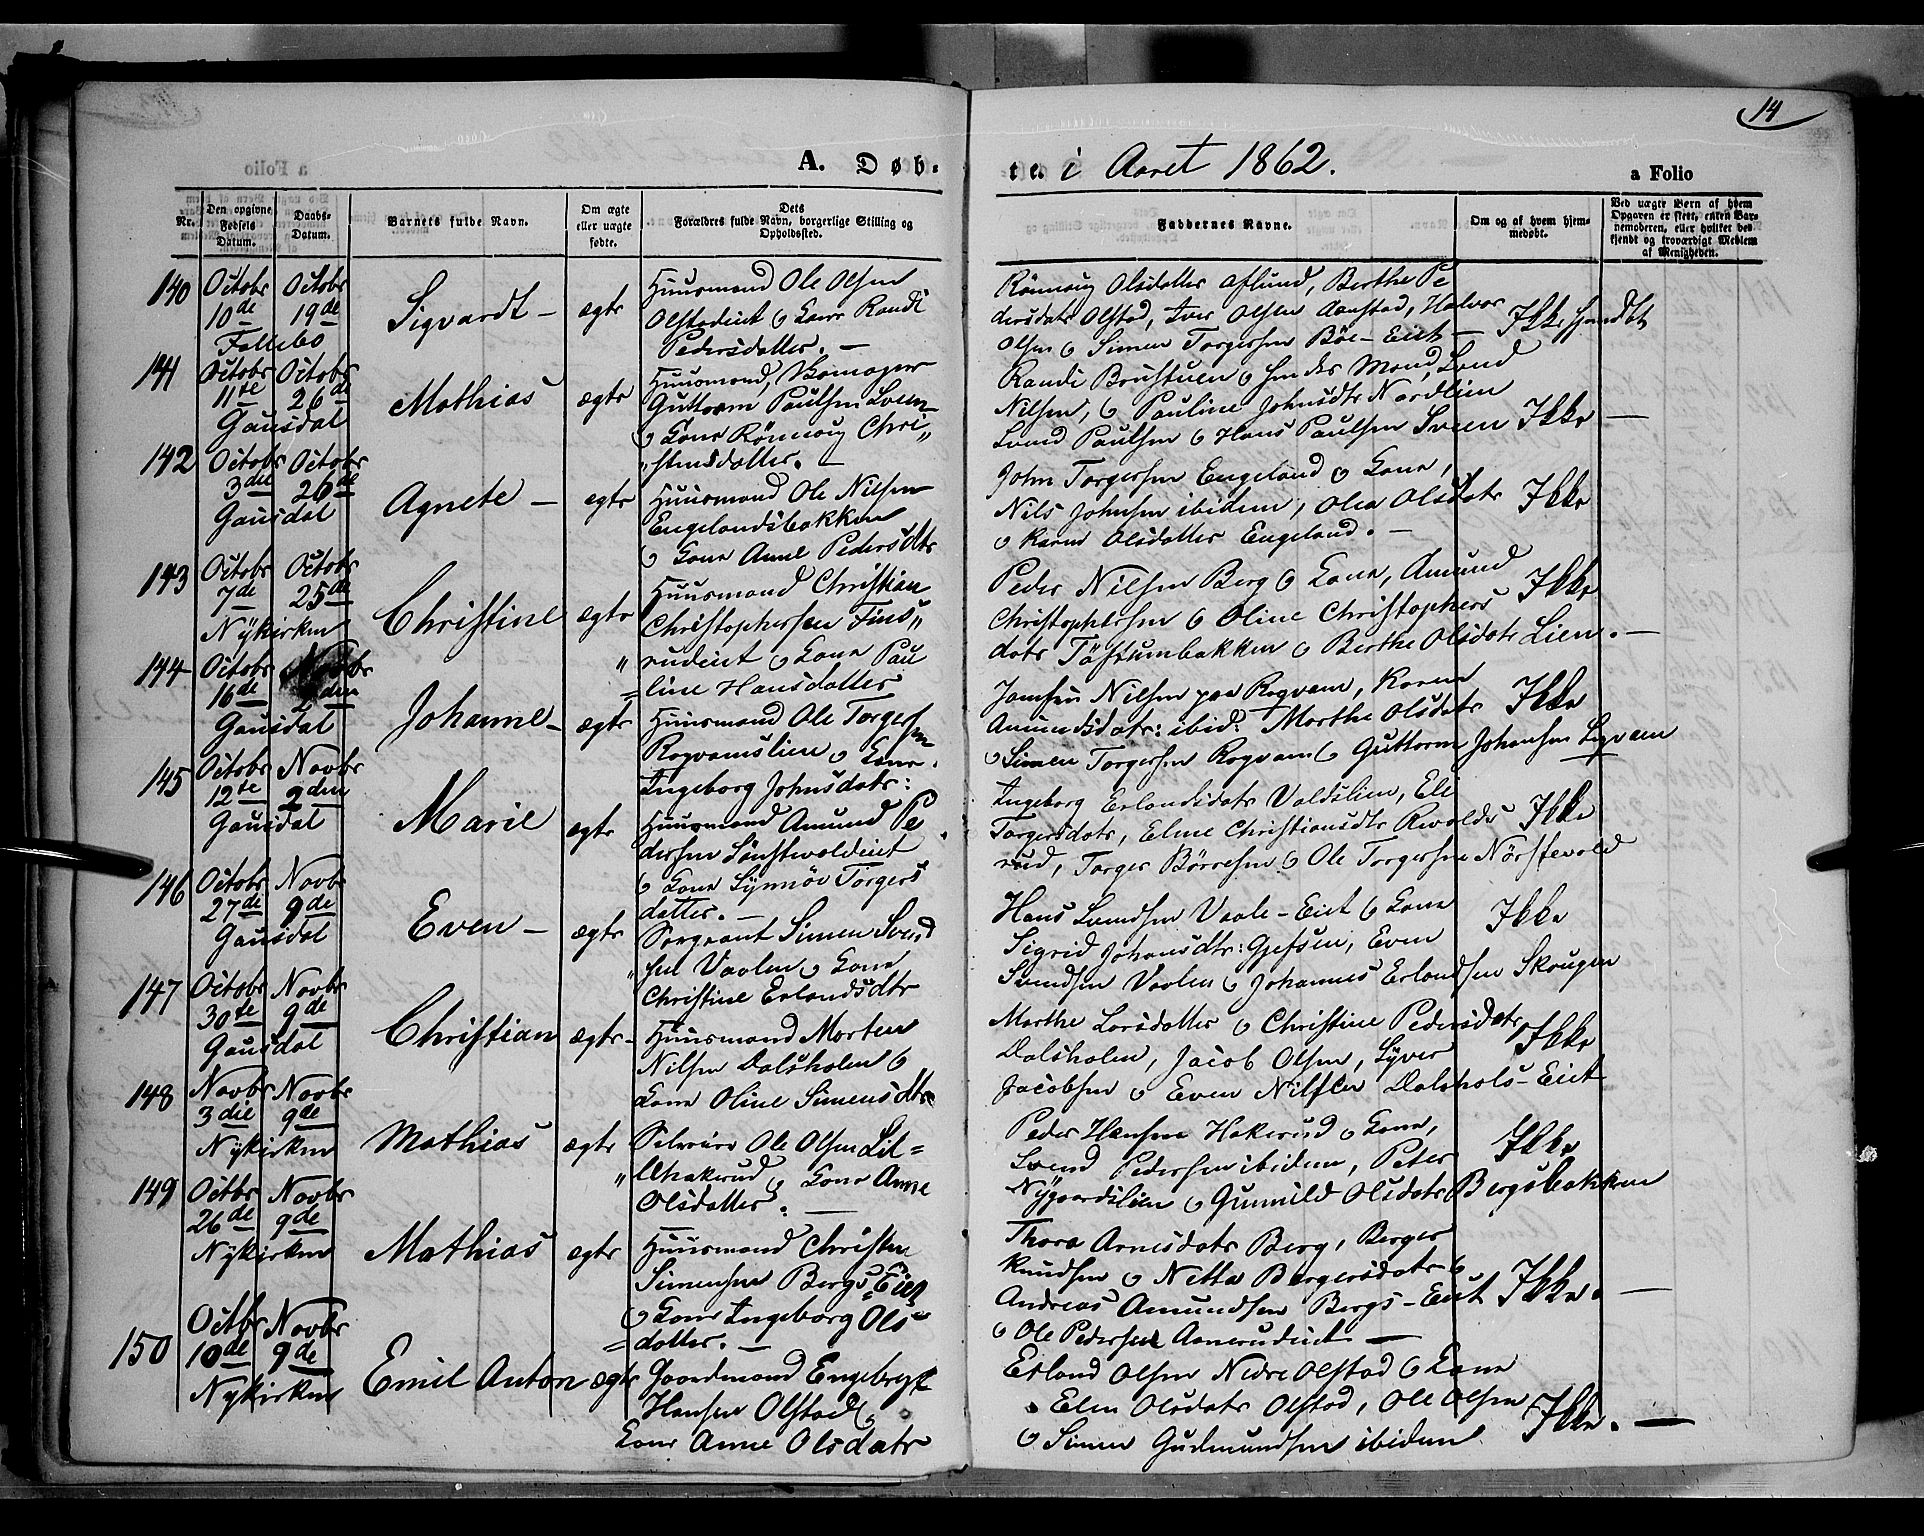 14
A. Døb-
te. i Aaret 1862.
a Folio
Nr.
Den opgivne Fødsels Datum.
Daabs-Datum.
Barnets fulde Navn.
Om ægte eller uægte fødte.
Dets Forældres fulde Navn, borgerlige Stilling og Opholdssted.
Faddernes Navne.
Om og af hvem hjemmedøbt.
Ved uægte Børn af hvem Opgaven er skeet, enten Barnemoderen, eller hvilket bekjendt og troværdigt Medlem af Menigheden.
140
Octobr 10de
Octobr 19de
Follebo
Sigvardt –
ægte
Huusmand Ole Olsen
Olstadeiet o Kone Randi
Pedersdatter. —
Rönnoug Olsdatter Aflund, Berthe Pe
dersdatr Olstad, Iver Olsen Aanstad, Halvor
Olsen o Simen Torgersen Böe-Eiet —
Ikke hjemdbt
141
Octobr 11te
Octobr 26de
Gausdal
Mathias
ægte
Huusmand, Skomager
Guttorm Paulsen Sveen
o Kone Rönnoug Chri„
„stensdatter. —
Randi Brustuen o hendes Mand Lund
Nilsen, o Pauline Johnsdtr Nordlien
Lund Paulsen o Hans Paulsen Sveen
Ikke —
142
Octobr 3die
Octobr 26de
Gausdal
Agnete –
egte
Huusmand Ole Nilsen
Engelandsbakken
o Kone Anne Pedersdtr
John Torgersen Engeland o Kone,
Nils Johnsen ibidem, Olea Olsdatr
o Karen Olsdatter Engeland. —
Ikke
143
Octobr 7de
Octobr 25de
Nÿkirken
Christine
ægte
Huusmand Christian
Christophersen Fins„
„rudeiet o Kone Pau
=line Hansdatter
Peder Nilsen Berg o Kone, Amund
Christophersen o Oline Christophers
datr Töftumbakken o Berthe Olsdatr Lien. —
Ikke
144
Octobr 16de
Novbr 2den
Gausdal
Johanne –
ægte
Huusmand Ole Torgersen
Rogvamslien o Kone
Ingeborg Johnsdatr:
Nilsen paa Rogvam, Karen
Amundsdatr: ibid: Marthe Olsdatr
o Simen Torgersen Rogvam o Guttorm Johansen
Ikke
145
Octobr 12te
Novbr 2den
Gausdal
Marie
egte
Huusmand Amund Pe
dersen
o Kone Synnöv Torgers
datter. —
Ingeborg Erlandsdatr Valdslien, Eli
Torgersdatr, Elene Christiansdtr
rud, Torger Börresen o Ole Torgersen
Ikke
146
Octobr 27de
Novbr 9de
Gausdal
Even –
ægte
Sergeant Simen Svend
„sen Vaalen o Kone
Christine Erlandsdtr
Hans Svendsen Vaale-Eiet o Kone
Sigrid Johansdtr: Gjefsen, Even
Svendsen Vaalen o Johannes Erlandsen Skougen
Ikke
147
Octobr 30te
Novbr 9de
Gausdal
Christian
ægte –
Huusmand Morten
Nilsen Dalsholen o
Kone Oline Simensdtr
Marthe Larsdatter o Christine Pedersdatr
Dalsholen, Jacob Olsen, Syver
Jacobsen o Even Nilsen Dalshols-Eiet
Ikke
148
Novbr 3die
Novbr 9de
Nykirken
Mathias
ægte
Selveier Ole Olsen Lil=
„lehakerud o Kone Anne
Olsdatter. —
Peder Hansen Hakerud o Kone,
Svend Pedersen ibidem, Peter
Nygaardslien o Gunnild Olsdatr Bergsbakken
Ikke
149
Octbr 26de
Novbr 9de
Nykirken
Mathias
egte
Huusmand Christen
Simensen Bergs-Eiet
o Kone Ingeborg Ols
=datter. —
Thora Arnesdatr Berg, Berger
Knudsen o Netta Bergersdatr o
Andreas Amundsen Bergs-Eiet
o Ole Pedersen Aanerudeiet —
Ikke. —
150
Octbr 10de
Novbr 9de
Nykirken
Emil Anton
ægte
Gaardmand Engebregt
Hansen Olstad o
Kone Anne Olsdatr
Erland Olsen Nedre Olstad o Kone
Elen Olsdatr Olstad, Ole Olsen
o Simen Gudmundsen ibidem
Ikke. —